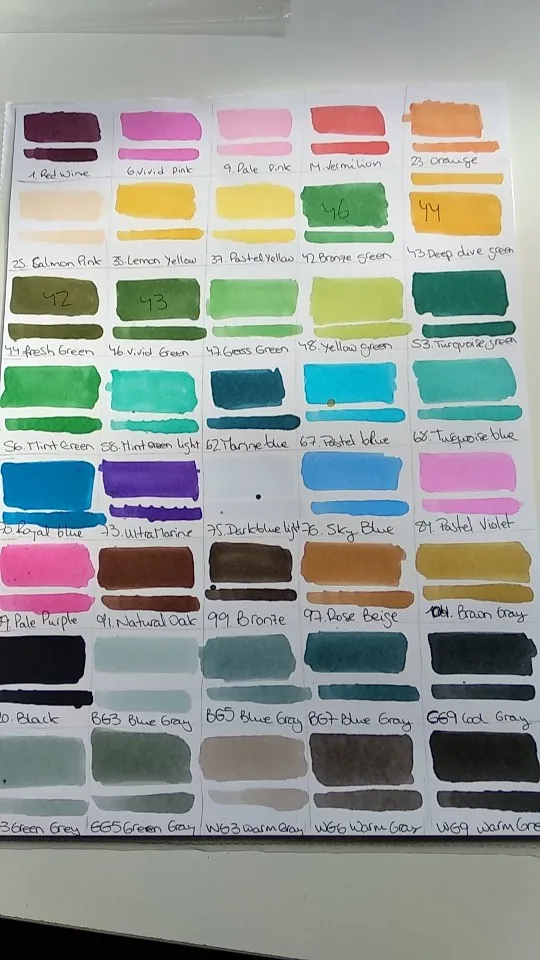 1. Red Wine
6. Vivid Pink
9. Pale Pink
14. Vermilion
23. Orange
25. Salmon Pink
35. Lemon Yellow
37. Pastel Yellow
46
42 Bronze green
44
43 Deep olive green
42
44 fresh Green
43
46 Vivid Green
47. Grass Green
48. Yellow green
53. Turquoise green
56. Mint Green
58. Mint Green light
62 Marine blue
67. Pastel blue
68. Turquoise blue
70. Royal blue
73. UltraMarine
75. Darkblue light
76. Sky Blue
84. Pastel Violet
9. Pale Purple
91. Natural Oak
99. Bronze
97. Rose Beige
104. Brown Gray
0. Black
BG3 Blue Gray
BG5 Blue Gray
BG7 Blue Gray
CG9 Cool Gray
3 Green Grey
GG5 Green Gray
WG3 Warm Gray
WG6 Warm Gray
WG9 Warm Gre